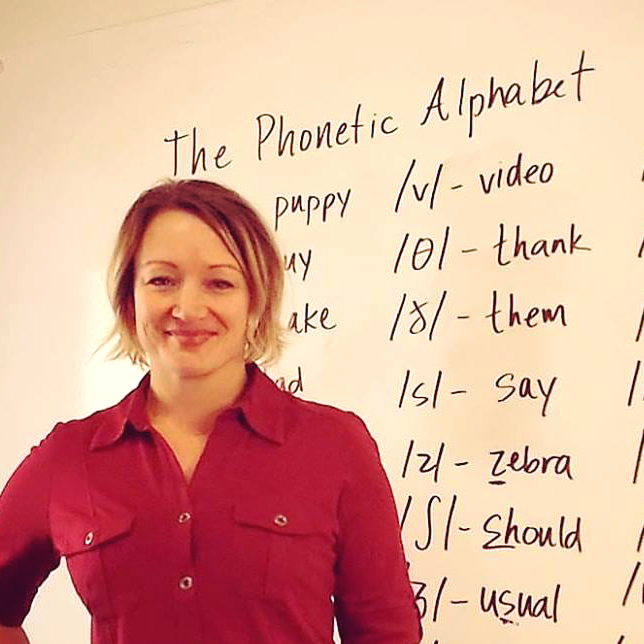 The Phonetic Alphabet
puppy /v/ - video
uy /θ/ - thank
ake /ð/ - them
ad /s/ - say
/z/ - zebra
/ʃ/ - should
ʒ/ - usual